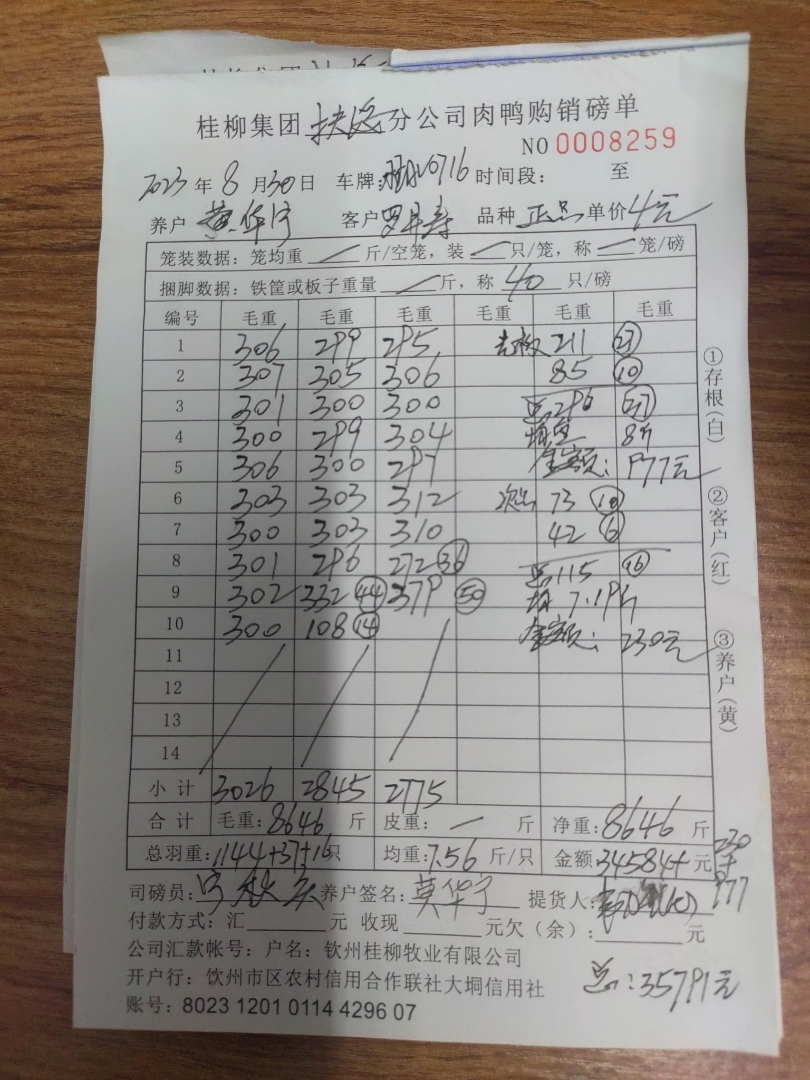 桂柳集团 分公司肉鸭购销磅单
NO 0008259
2023 年 8 月 30 日 车牌: 0716 时间段: 至
养户 黄华宇 客户 罗 寿 品种 正品 单价 4元
笼装数据: 笼均重 / 斤/空笼, 装 / 只/笼, 称 / 笼/磅
捆脚数据: 铁筐或板子重量 / 斤, 称 40 只/磅
编号 毛重 毛重 毛重 毛重 毛重 毛重
1 306 299 295 211 27
2 307 305 306 85 10
3 301 300 300 总296 37
4 300 299 304 8斤
5 306 300 297 金额: 977元
6 303 303 312 次品 73 10
7 300 303 310 42 6
8 301 296 272 36 总115 16
9 302 332 44 379 50 均 7.19斤
10 300 108 14 金额: 230元
11
12
13
14
小计 3026 2845 2775
合计 毛重: 8646 斤 皮重: 一 斤 净重: 8646 斤
总羽重: 1144+37+16 只 均重: 7.56 斤/只 金额: 34584+ 元 230+977
司磅员: 养户签名: 莫华宇 提货人:
付款方式: 汇 元 收现 元欠(余): 元
公司汇款帐号: 户名: 钦州桂柳牧业有限公司
开户行: 钦州市区农村信用合作联社大垌信用社
总: 35791元
账号: 8023 1201 0114 4296 07
①存根(白)
②客户(红)
③养户(黄)